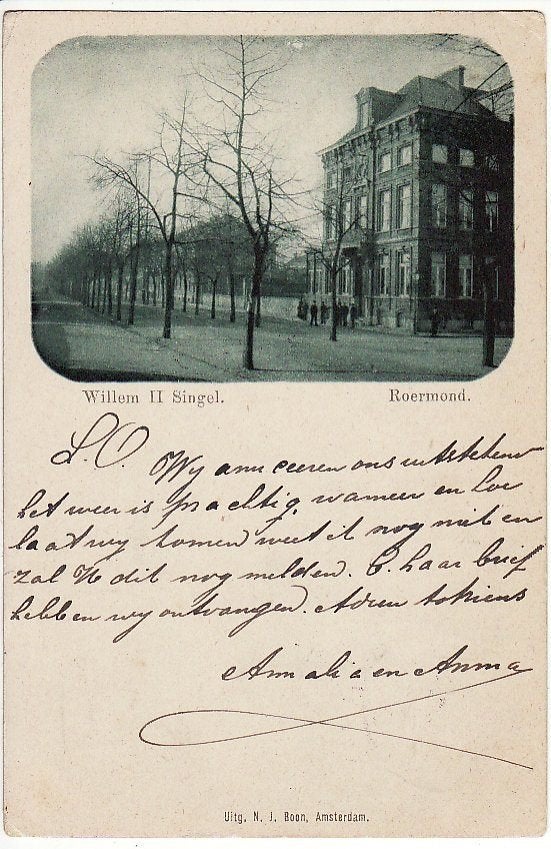 Willem II Singel. Roermond.
L. O. Wij amuceeren ons uitstekend
het weer is prachtig, wanneer en hoe
laat wij komen weet ik nog niet en
zal U dit nog melden. C. haar brief
hebben wij ontvangen. Adieu tokiens
Amalia en Anna
Uitg. N. J. Boon, Amsterdam.